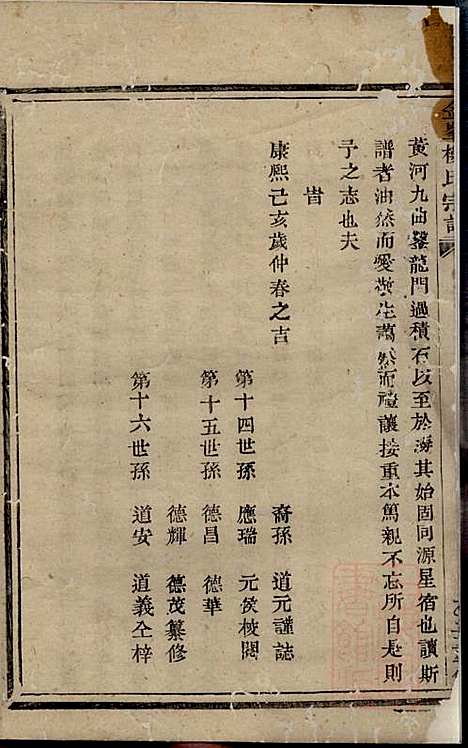 黃河九曲鑿龍門過積石以至於海其始固同源星宿也讀斯
譜者油然而愛敬生藹然而禮讓接重本篤親不忘所自是則
予之志也夫
旹
康熙己亥歲仲春之吉
裔孫 道元謹誌
第十四世孫 應瑞 元侯校閱
第十五世孫 德昌 德華
德輝 德茂纂修
第十六世孫 道安 道義仝梓
氏宗譜